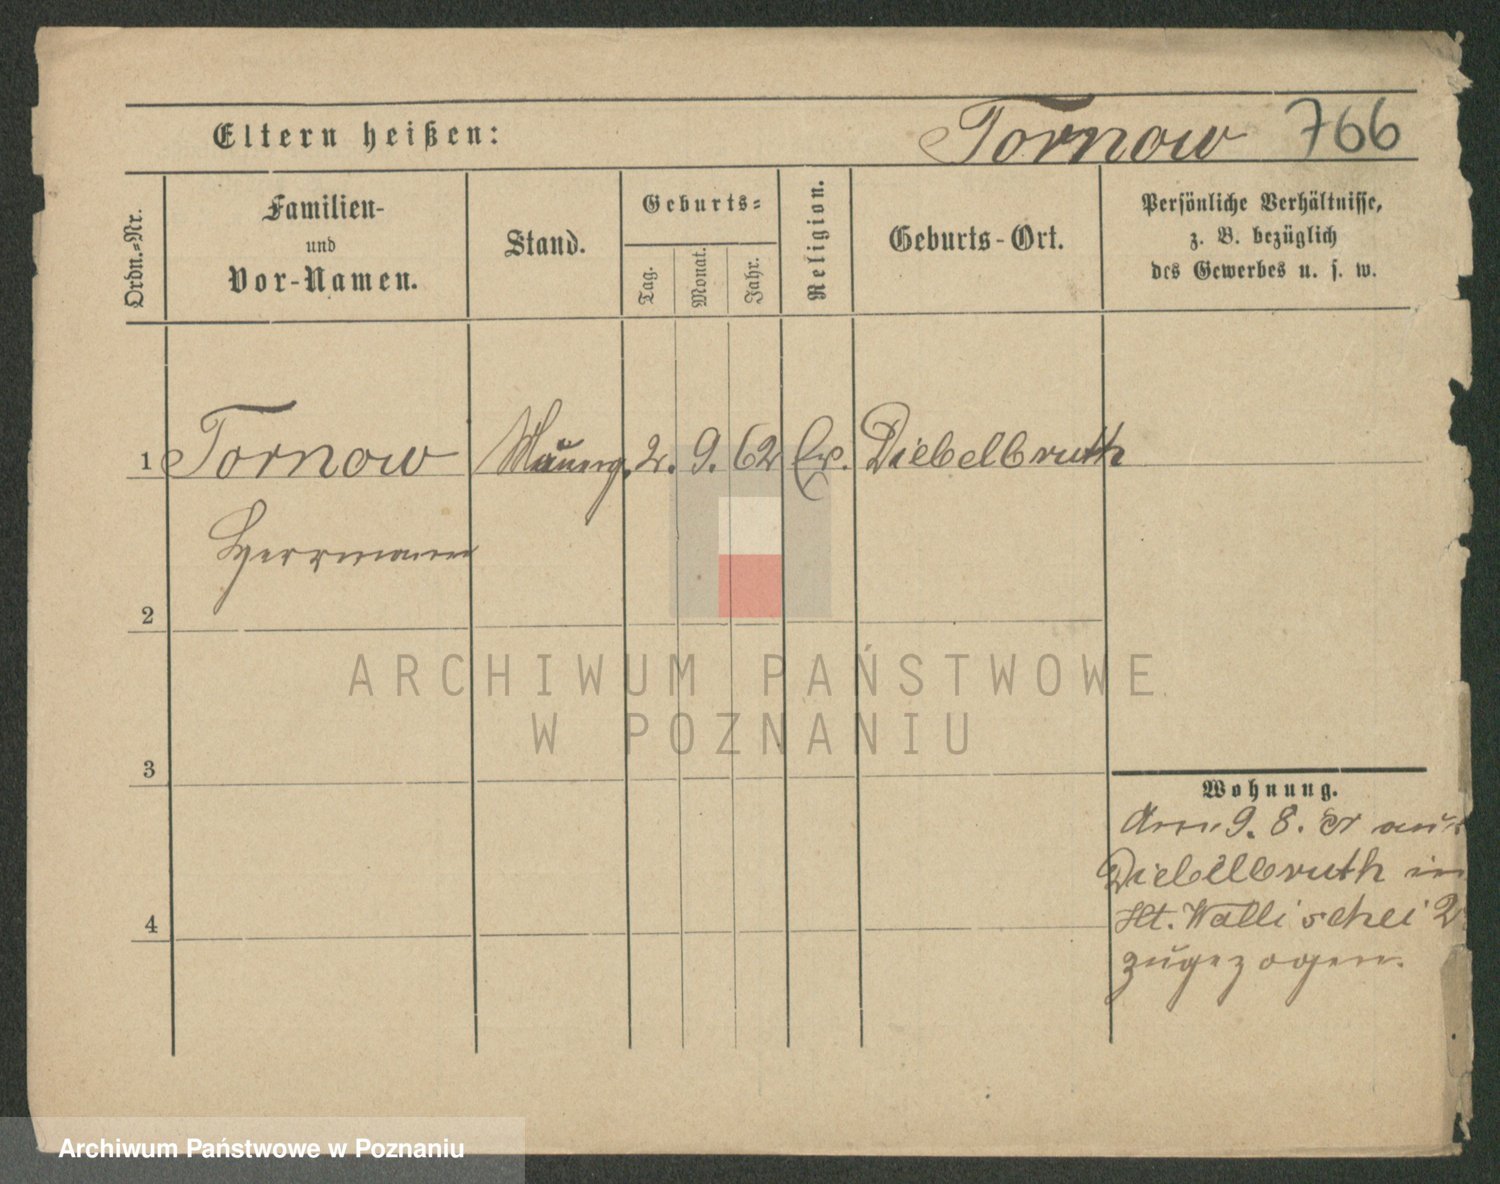 Eltern heißen: Tornow 766
Ordn.-Nr.
Familien-
und
Vor-Namen.
Stand.
Geburts-
Tag.
Monat.
Jahr.
Religion.
Geburts-Ort.
Persönliche Verhältnisse,
z. B. bezüglich
des Gewerbes u. s. w.
1 Tornow Maurerg. 2. 9. 62 Ev. Diebelbruth
Herrmann
2
3
4
Wohnung.
Am 9. 8. cr aus
Diebelbruth in
St. Wallischei 2
zugezogen.
ARCHIWUM PAŃSTWOWE
W POZNANIU
Archiwum Państwowe w Poznaniu